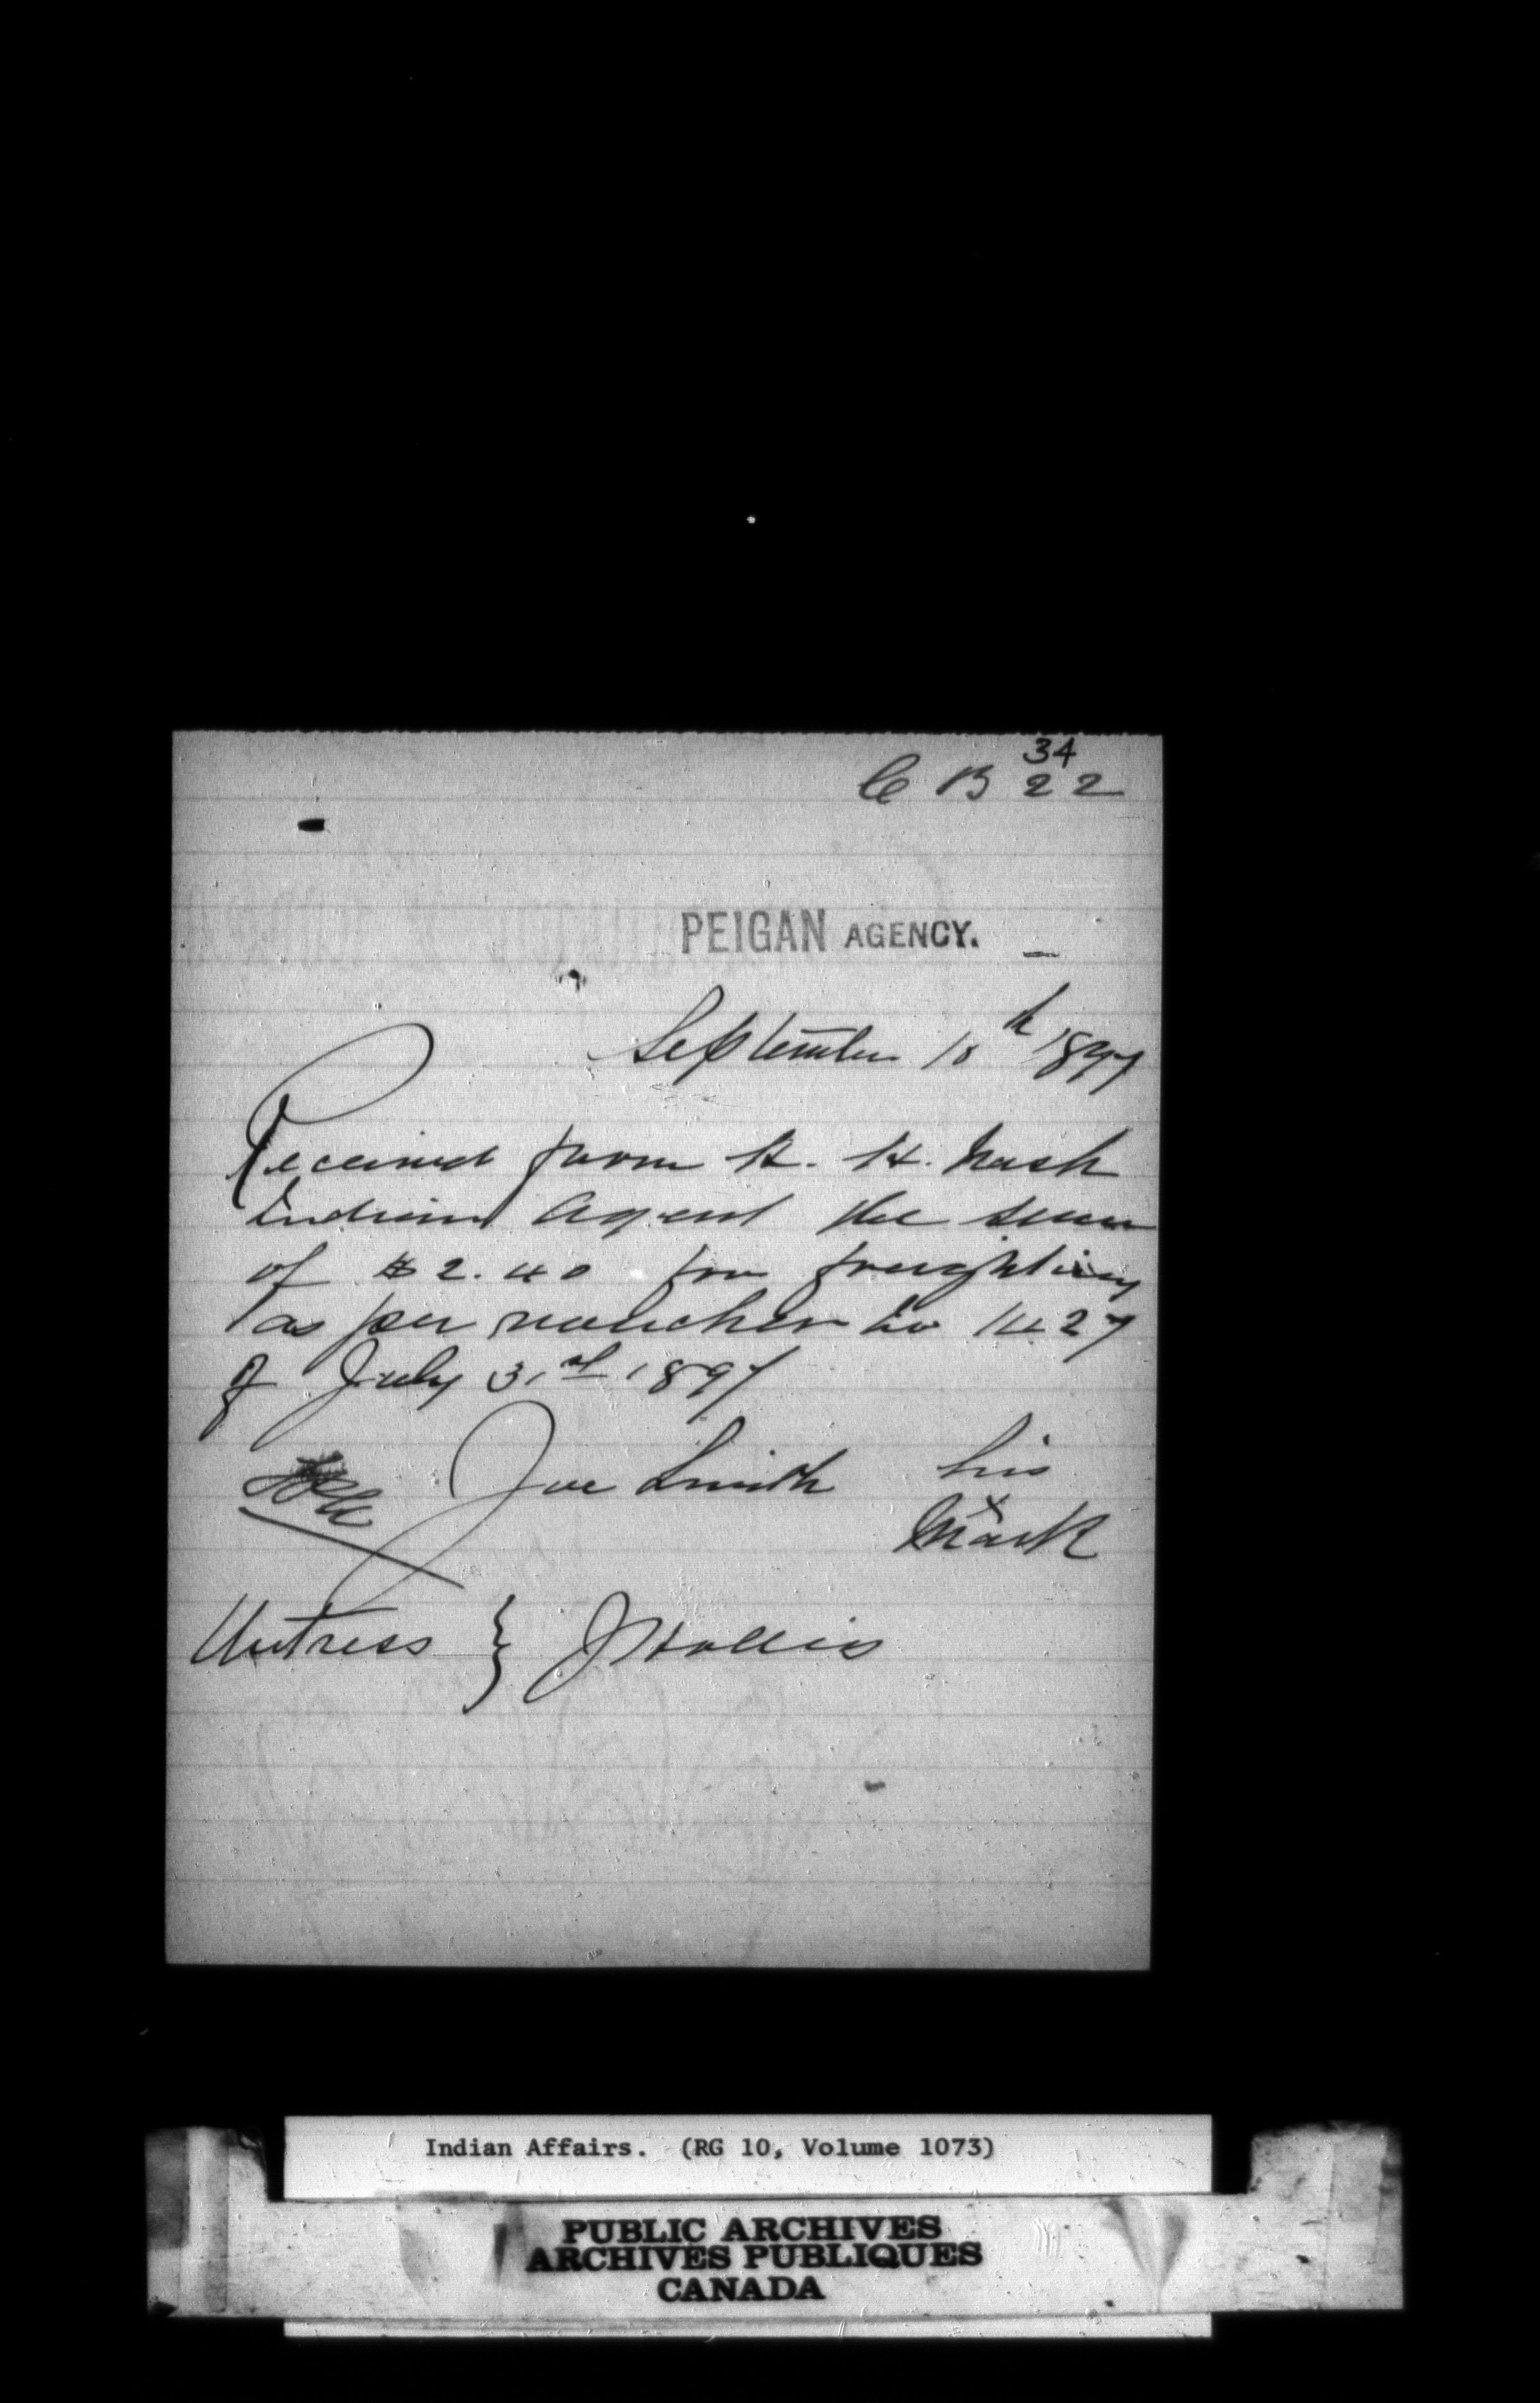 34
C B 22
PEIGAN AGENCY.
September 10th 1897
Received from H. H. Nash
Indian Agent the sum
of $2.40 for freighting
as per voucher No 1427
of July 31st 1897
Joe Smith his
x
Mark
Witness } J Hollis
Indian Affairs. (RG 10, Volume 1073)
PUBLIC ARCHIVES
ARCHIVES PUBLIQUES
CANADA